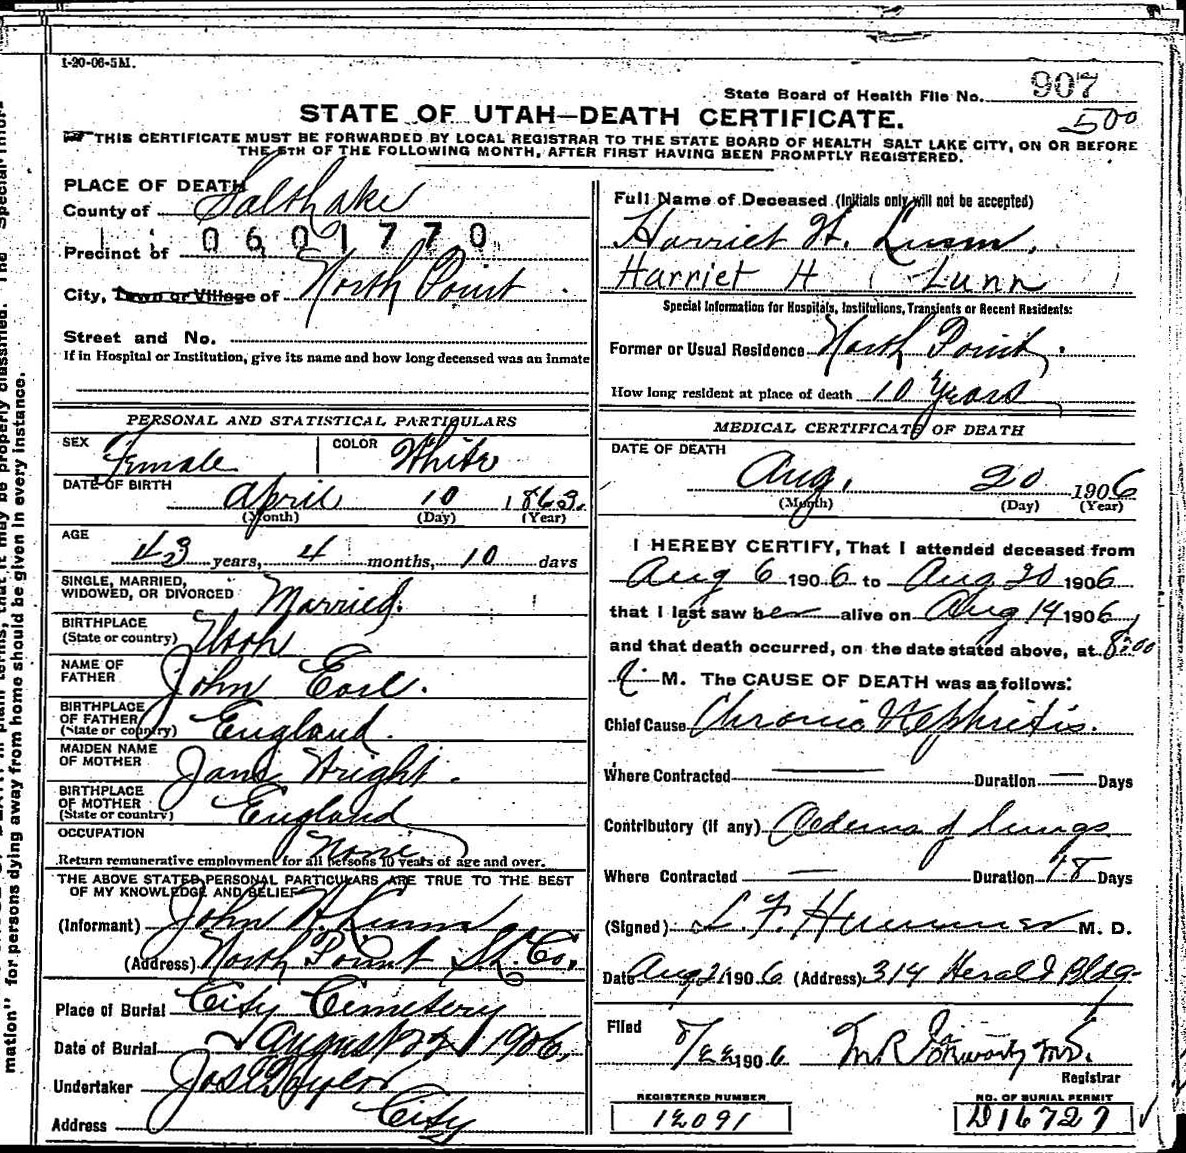 1-20-06-5M.
State Board of Health File No. 907
STATE OF UTAH—DEATH CERTIFICATE.
500
THIS CERTIFICATE MUST BE FORWARDED BY LOCAL REGISTRAR TO THE STATE BOARD OF HEALTH SALT LAKE CITY, ON OR BEFORE
THE 5TH OF THE FOLLOWING MONTH, AFTER FIRST HAVING BEEN PROMPTLY REGISTERED.
PLACE OF DEATH
County of Salt Lake
0601770
Precinct of
City, Town or Village of North Point
Street and No.
If in Hospital or Institution, give its name and how long deceased was an inmate
PERSONAL AND STATISTICAL PARTICULARS
SEX Female COLOR White
DATE OF BIRTH April 10 1863.
(Month) (Day) (Year)
AGE
43 years, 4 months, 10 days
SINGLE, MARRIED,
WIDOWED, OR DIVORCED Married.
BIRTHPLACE
(State or country) Utah
NAME OF
FATHER John Earl.
BIRTHPLACE
OF FATHER
(State or country) England.
MAIDEN NAME
OF MOTHER Jane Wright.
BIRTHPLACE
OF MOTHER
(State or country) England
OCCUPATION None
Return remunerative employment for all persons 10 years of age and over.
THE ABOVE STATED PERSONAL PARTICULARS ARE TRUE TO THE BEST
OF MY KNOWLEDGE AND BELIEF
(Informant) John H. Lunn
(Address) North Point S.L. Co.
Place of Burial City Cemetery
Date of Burial August 22 1906,
Undertaker Jos. E. Taylor
Address City
Full Name of Deceased (Initials only will not be accepted)
Harriet H. Lunn,
Harriet H (Lunn)
Special Information for Hospitals, Institutions, Transients or Recent Residents:
Former or Usual Residence North Point.
How long resident at place of death 10 Years
MEDICAL CERTIFICATE OF DEATH
DATE OF DEATH
Aug. 20 1906
(Month) (Day) (Year)
I HEREBY CERTIFY, That I attended deceased from
Aug 6 1906 to Aug 20 1906
that I last saw her alive on Aug 14 1906,
and that death occurred, on the date stated above, at 8:00
M. The CAUSE OF DEATH was as follows:
Chief Cause Chronic Nephritis.
Where Contracted — Duration — Days
Contributory (if any) Oedema of lungs
Where Contracted — Duration 18 Days
(Signed) L. F. M. D.
Date Aug 21 1906 (Address) 314 Herald Bldg
Filed 8/22 1906 M.D.
Registrar
REGISTERED NUMBER
12091
NO. OF BURIAL PERMIT
D16727
mation" for persons dying away from home should be given in every instance.